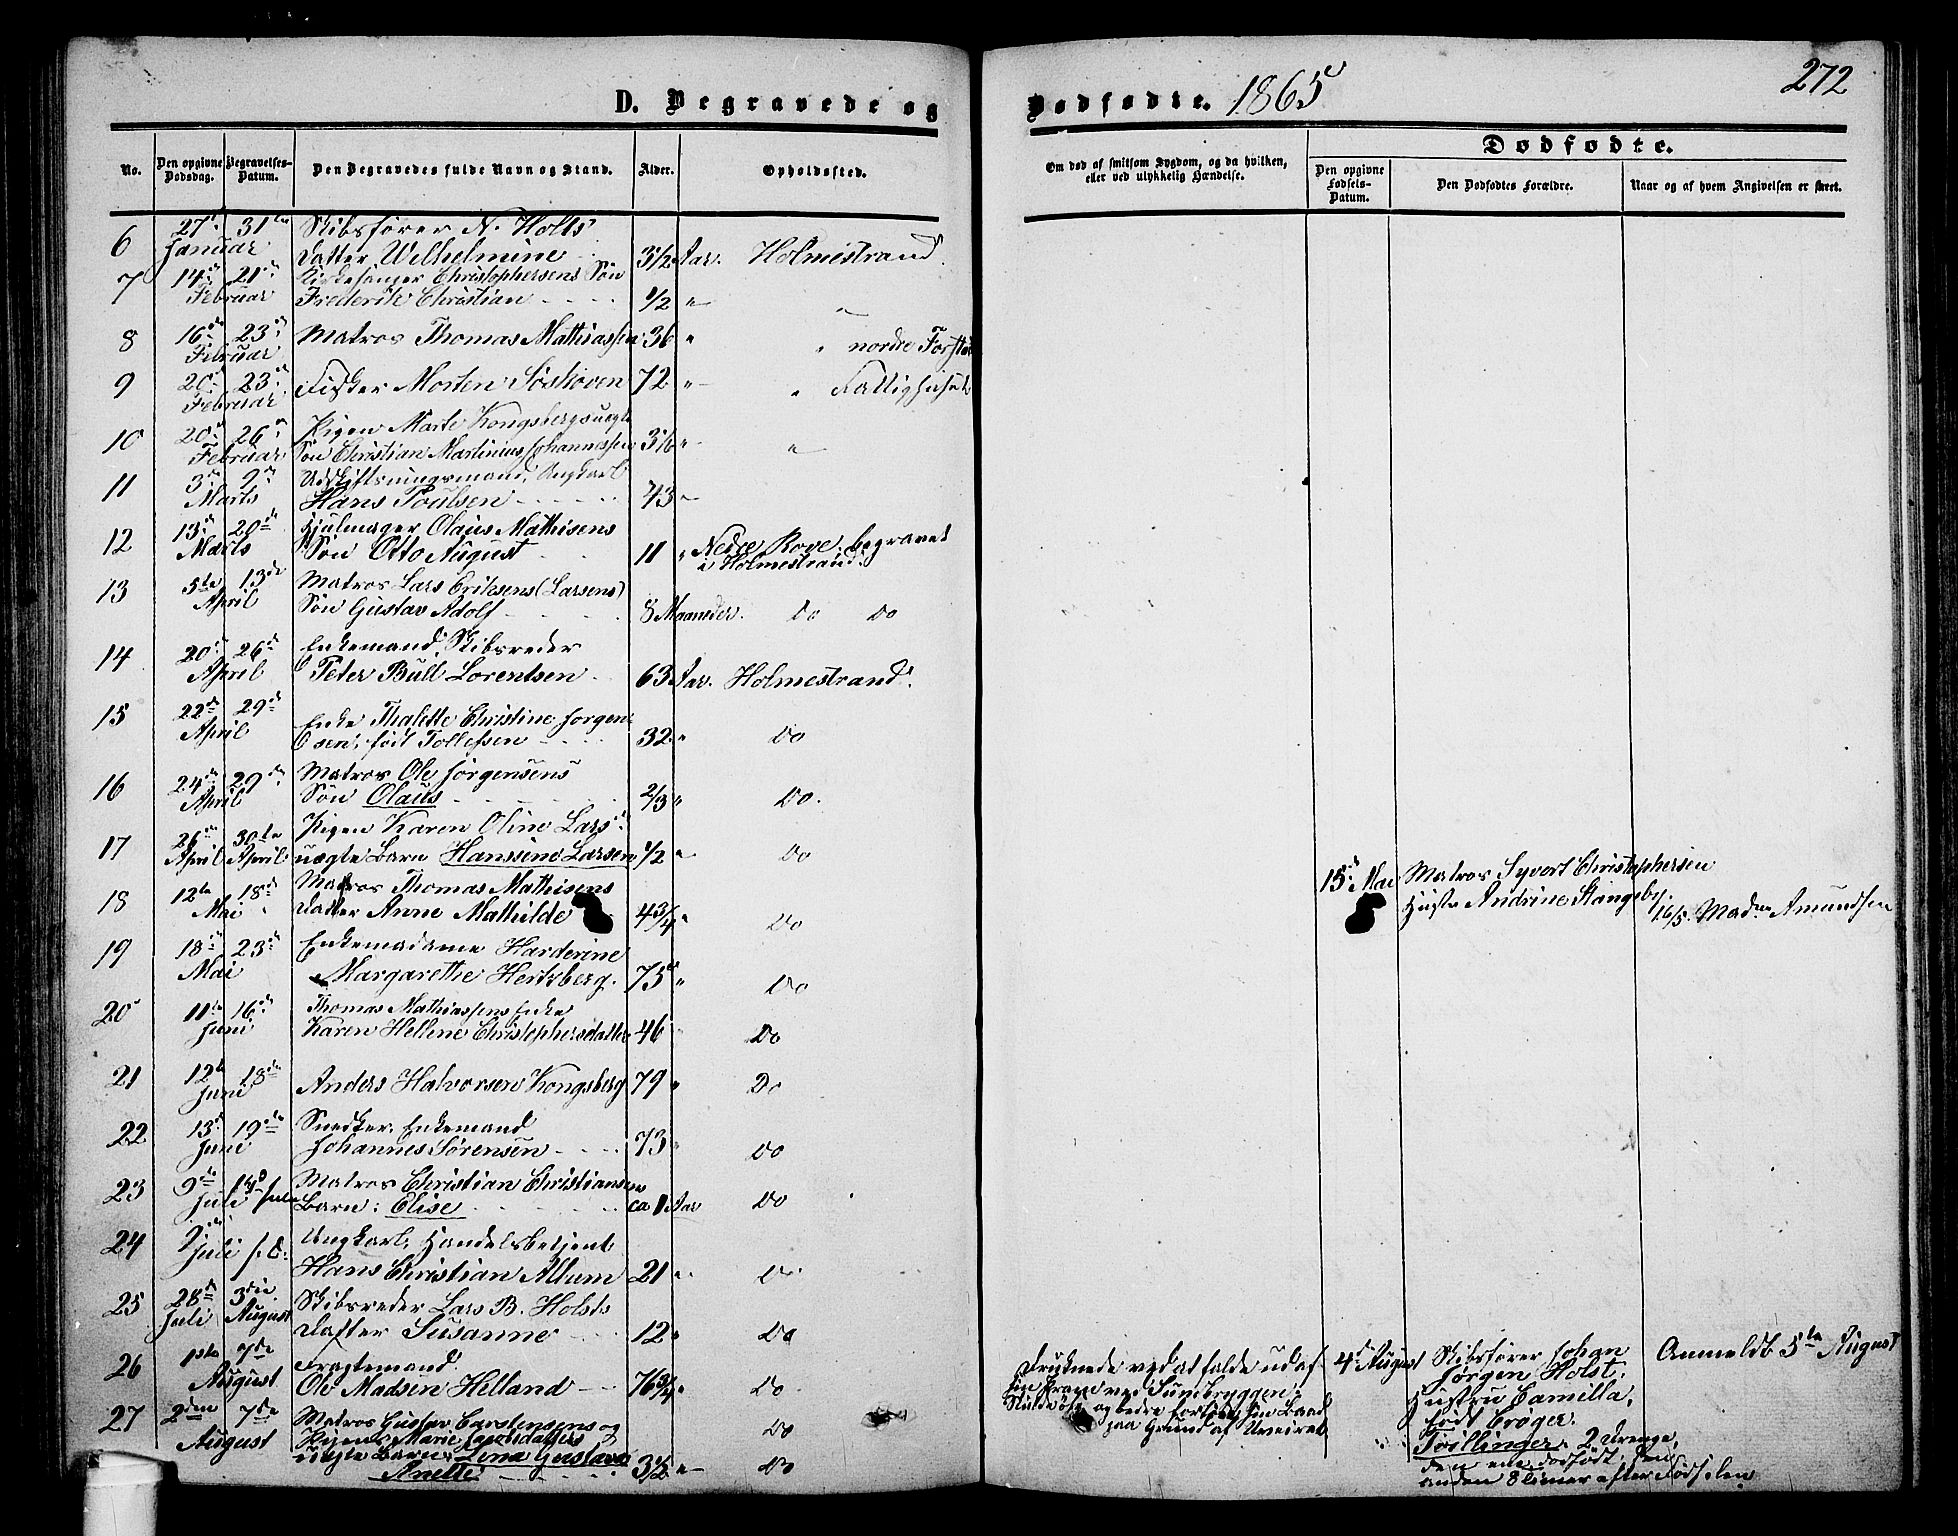 272
D. Begravede og Dødfødte. 1865
Dødfødte.
No.
Den opgivne Dødsdag.
Begravelses-Datum.
Den Begravedes fulde Navn og Stand.
Alder.
Opholdssted.
Om død af smitsom Sygdom, og da hvilken, eller ved ulykkelig Hændelse.
Den opgivne Fødsels-Datum.
Den Dødfødtes Forældre.
Naar og af hvem Angivelsen er skeet.
6 27 Januar 31te Skibsfører N. Holts
Datter Wilhelmine 3½ Aar. Holmestrand.
7 14de Februar 21de Kirkesanger Christophersens Søn
Frederik Christian ½ "
8 16de Februar 23de Matros Thomas Mathiassen 36 " " nordre Forstad
9 20de Februar 23de Fisker Morten Søskoven 72 " " Fattighuset
10 20de Februar 26de Pigen Marte Kongsbergs uægte
Søn Christian Martinius Johannessen 3/6 " "
11 3de Marts 9de Udskiftningsmand, Ungkarl
Hans Poulsen 43 "
12 13de Marts 20de Hjulmager Olaus Mathisens
Søn Otto August 11 " Nedre Rove, begravet
i Holmestrand.
13 5te April 13de Matros Lars Eriksens (Larsens)
Søn Gustav Adolf 8 Maaneder. Do Do
14 20de April 26de Enkemand, Skibsreder
Peter Bull Lorentsen 63 Aar. Holmestrand.
15 22de April 29de Enke Thalette Christine Jorgen-
sen, født Tollefsen 32 " Do
16 24de April 29de Matros Ole Jørgensens
Søn Olaus 2/3 " Do.
17 26de April 30te April Pigen Karen Oline Lars
uægte Barn Hanssine Larsen ½ " Do
18 12te Mai 18de Matros Thomas Mathisens
Datter Anne Mathilde 4¾ " Do
15de Mai Matros Syvert Christophersen
Hustr Andrine Stangeby. 16/5. Madme Amundsen
19 18de Mai 23de Enkemadame Harderine
Margarethe Hertzberg. 75 " Do
20 11te Juni 16de Thomas Mathiassens Enke
Karen Hellene Christophersdatter 46 " Do
21 12te Juni 18de Anders Halvorsen Kongsberg 79 " Do
22 13de Juni 19de Snedker, Enkemand
Johannes Sørensen 73 " Do
23 9de Juli Juli Matros Christian Christiansens
Barn: Elise ca 1 Aar Do
24 Juli Ungkarl, Handelsbetjent
Hans Christian Allum 21 " Do
25 28de Juli 3die August Skibsreder Lars B. Holsts
Datter Susanne 12 " Do
26 1ste August 7de Fragtemand
Ole Madsen Helland 76¾ " Do
Druknede ved at falde ud af
sin Pram ved Sundbryggen,
paa Grund af Uveiret
4de August Skibsfører Johan
Jørgen Holst,
Hustru Camilla,
født Crøger.
Tvillinger, 2 Drenge,
den ene dødfødt, den
anden 8 Timer efter Fødselen
Anmeldt 5te August
27 2den August 7de Matros Gustav Carstensens og
Pigen Marie Jacobsdatters Do
uægte Barn: Lena Gustava
Anette 3½ " Do